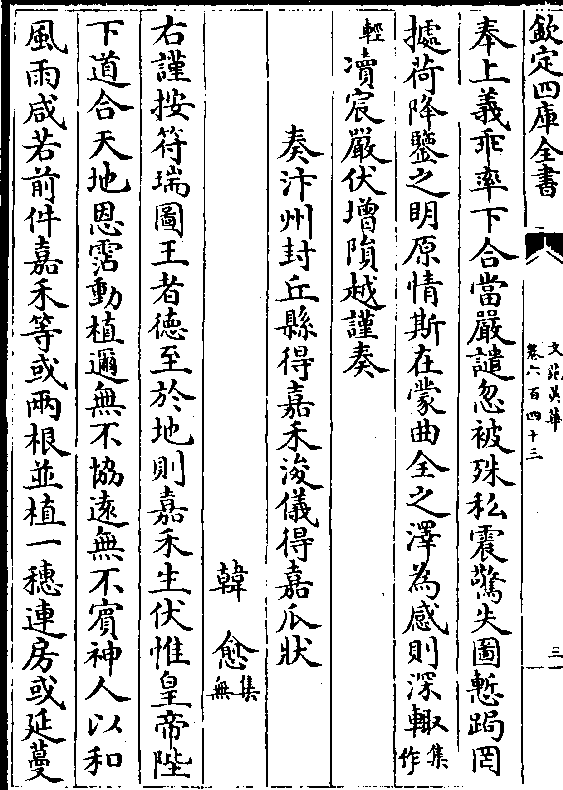 欽定四庫全書
文苑英華
卷六百四十三
三
奉上義乖率下合當嚴譴忽被殊私震驚失圖慙跼罔
據荷降鑒之明原情斯在蒙曲全之澤為感則深輙集作
輕凟宸嚴伏增隕越謹奏
奏汴州封丘縣得嘉禾浚儀得嘉瓜狀
韓愈集無
右謹按符瑞圖王者德至於地則嘉禾生伏惟皇帝陛
下道合天地恩霑動植邇無不協遠無不賓神人以和
風雨咸若前件嘉禾等或兩根並植一穗連房或延蔓